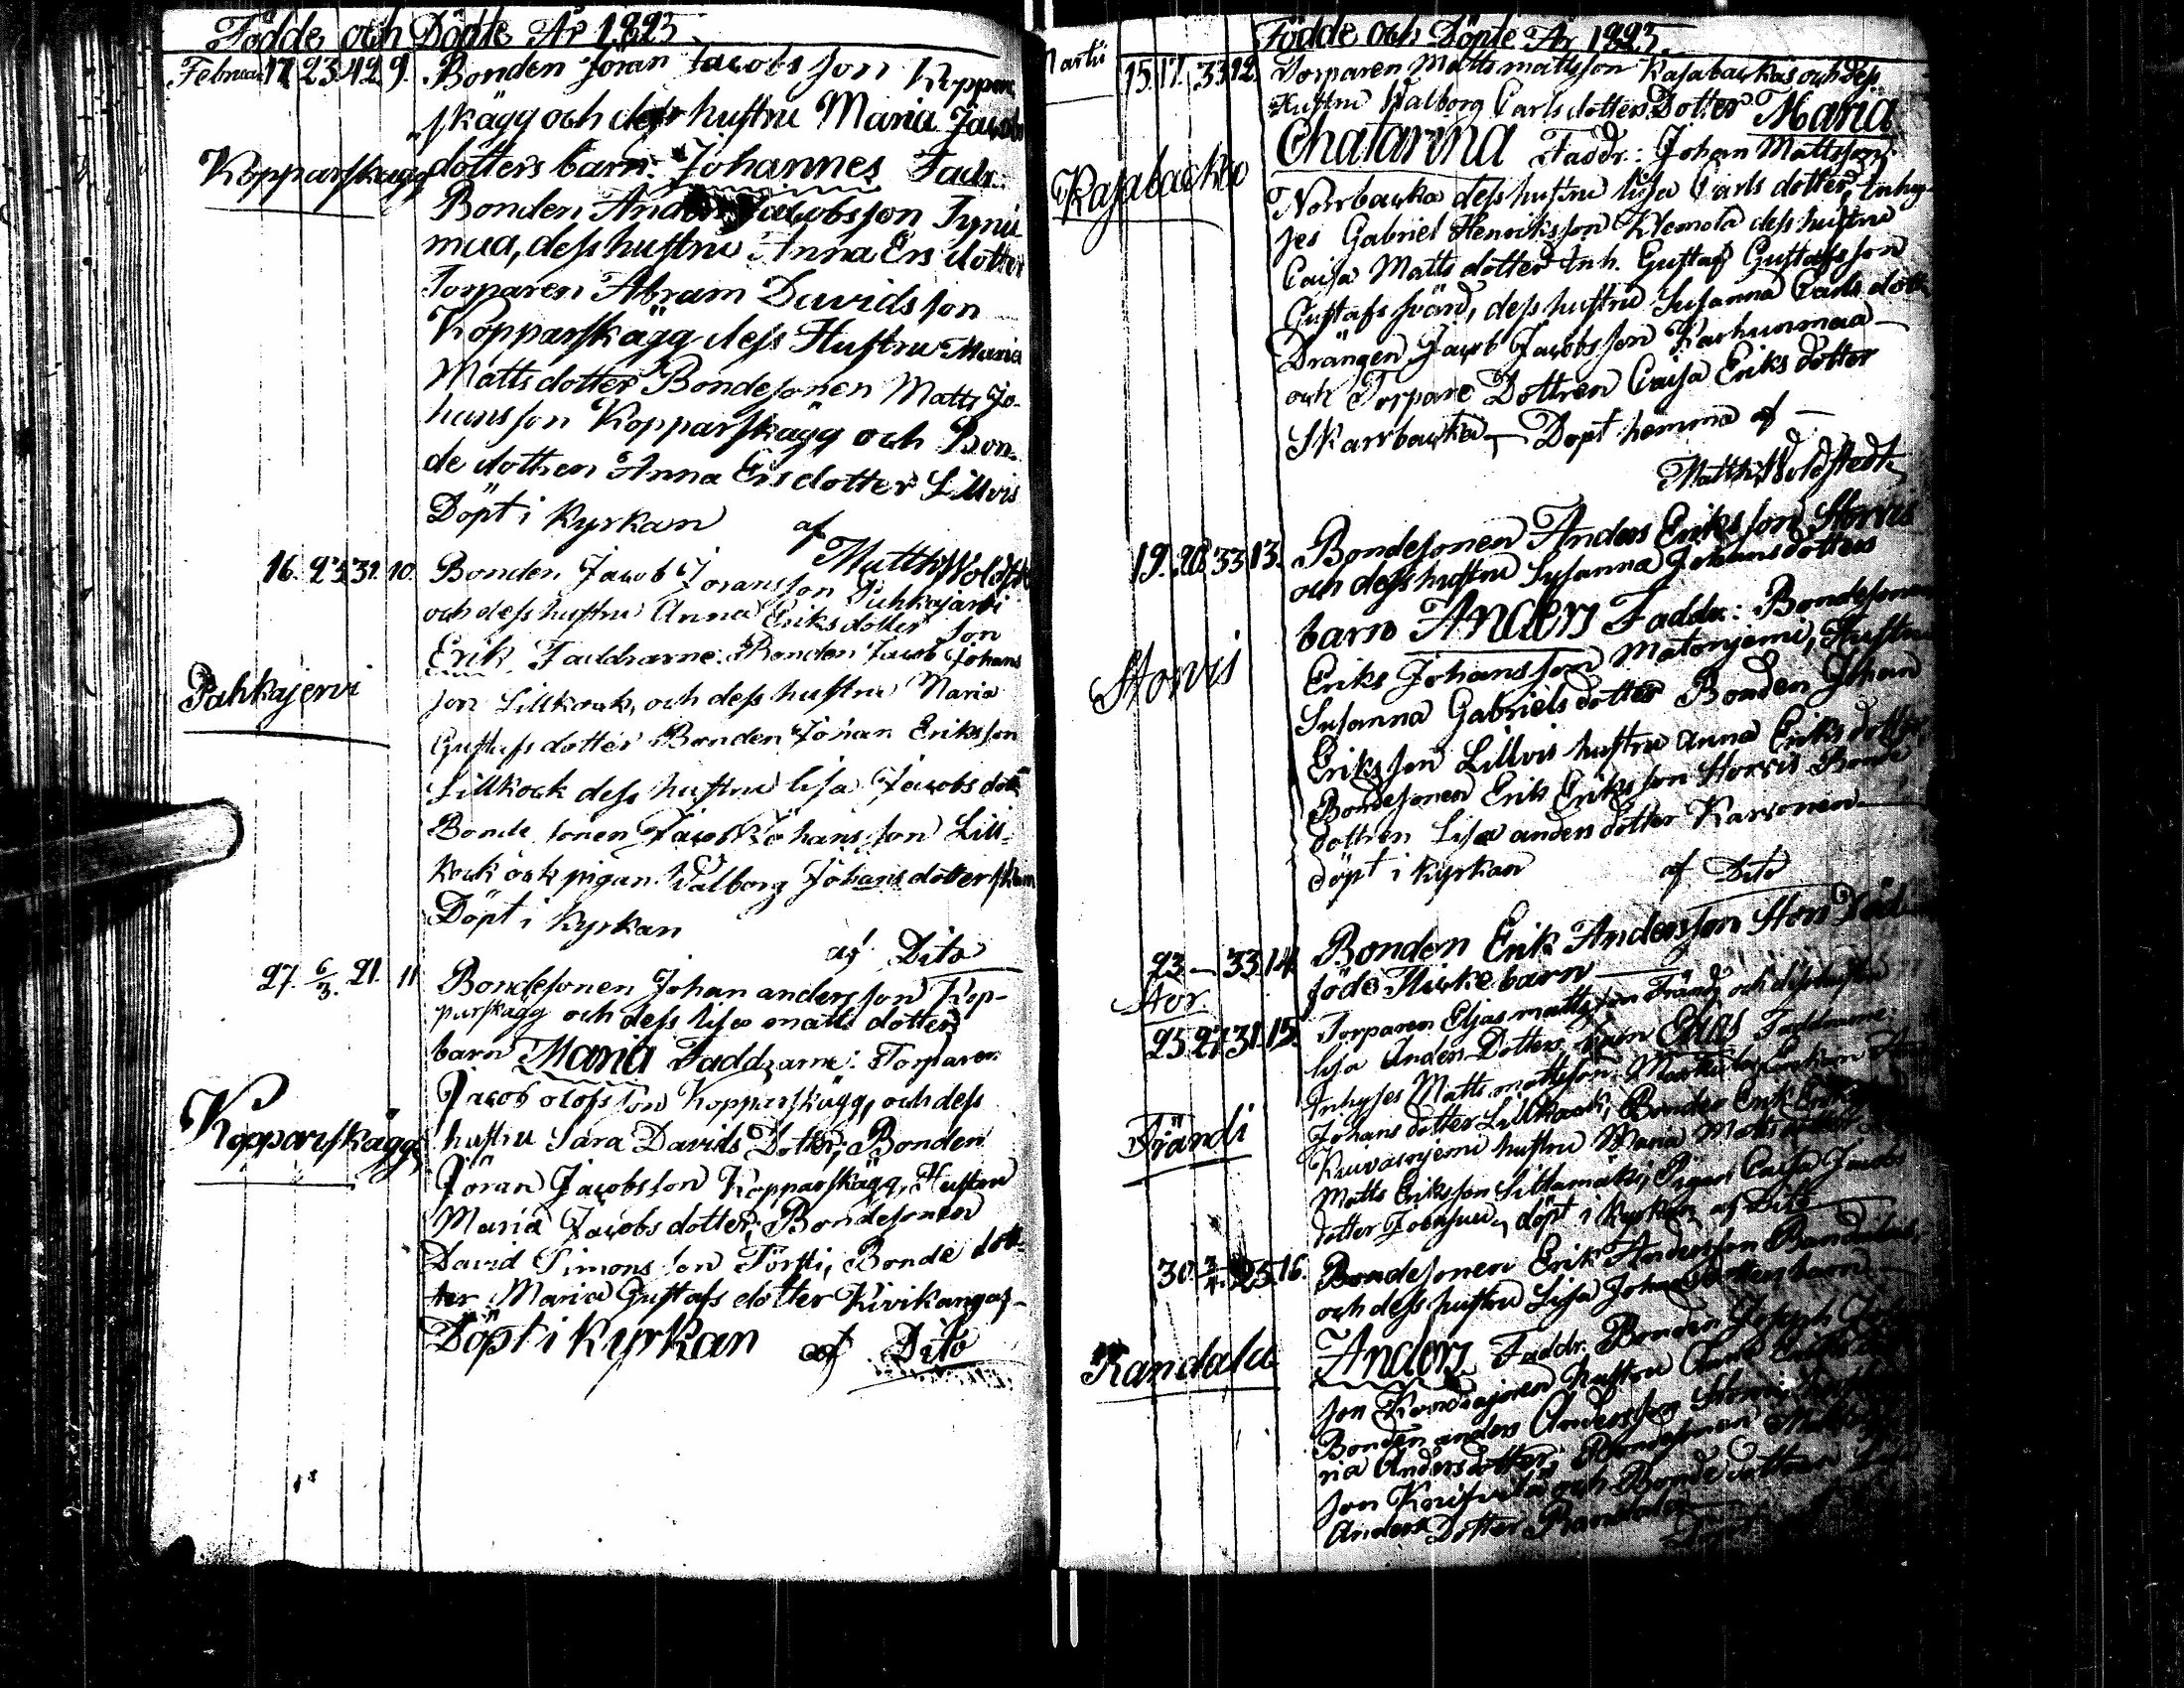 Födde och Döpte År 1823.
Februar 17. 23. 42. 9. Bonden Jöran Jacobs son Koppar
skägg och dess hustru Maria Jacobs
Kopparskägg dotters barn: Johannes Faddr.
Bonden Anders Jacobsson Tyni
mua, dess hustru Anna Ers dotter
Torparen Abram Davidsson
Kopparskägg dess Hustru Maria
Matts dotter Bondesonen Matts Jo-
hansson Kopparskägg och Bon-
de dottren Anna Ersdotter Lillvis
Döpt i Kyrkan af
Matth Woldstedt
16. 23. 31. 10. Bonden Jacob Joransson Puhkajarvi
och dess hustru Anna Eriks dotter Son
Erik Faddrarne: Bonden Jacob Johans
Pahkajervi son Lillkock, och dess hustru Maria
Gustafs dotter Bonden Johan Eriksson
Lillkock dess hustru lisa Jacobs dott
Bonde sonen Jacob Johansson Lill-
kock och pigan Valborg Johans dotter
Döpt i Kyrkan
af Dito
27. 6/3. 21. 11 Bondesonen Johan andersson Kop-
parskägg och dess lisa matts dotters
barn Maria Faddrarne: Torparen
Jacob olofsson Kopparskägg, och dess
Kopparskägg hustru Sara Davids Dotter, Bonden
Jöran Jacobsson Kopparskägg, Hustru
Maria Jacobs dotter, Bondesonen
David Simons son Törsti, Bonde dott-
ter Maria Gustafs dotter Kivikangas-
Döpt i Kyrkan af Dito
Födde och Döpte År 1823.
Martii 15. 17. 33. 12. Torparen Matts mattsson Kasabackas och dess
Hustru Walborg Carls dotters Dotter Maria
Chatarina Faddr.: Johan Mattsson
Kasabacka Norrbacka dess hustru lisa Carls dotter, Inhy-
ses Gabriel Henriksson Klemola dess hustru
Caisa Matts dotter Inh. Gustaf Gustafsson
Gustafssvärd, dess hustru Susanna Carls dott
Drängen Jacob Jacobsson Karhunmaa
och Torpare Dottren Caisa Eriks dotter
Skarrbacka Döpt hemma af
Matth Woldstedt
19. 20. 33. 13. Bondesonen Anders Eriksson Storvis
och dess hustru Susanna Johansdotters
barn Anders Faddr: Bondesonen
Storvis Eriks Johansson Matonjemi, Hustru
Susanna Gabriels dotter Bonden Johan
Eriksson Lillvis hustru Anna Eriks dotter
Bondesonen Erik Eriksson Storvis Bonde
dottren Lisa anders dotter Karvonen
döpt i Kyrkan af Dito
23. — 33. 14. Bonden Erik Andersson Stor Död
Stor. föde Flicke barn
25. 27. 31. 15. Torparen Elias mattsson Frändi och dess hustru
lisa Anders Dotters barn Elias Faddrarne:
Inhyses Matts mattsson
Frändi Johans dotter Lillkock, Bonden Erik Eriks
Kuivasnjemi hustru Maria Matts dotter
Matts Eriksson Sillamäki, Pigan Caisa Jacobs
dotter döpt i Kyrkan af Dito
30. 3/4. 23. 16. Bondesonen Erik Andersson Randalas
och dess hustru Lisa Johansdotters barn
Randala Anders Faddr. Bonden Joseph
son hustru Anna Eriks
Bonden anders Andersson
ria Anders dotter, Bondesonen Matts
son och Bonde dottren Lisa
Anders Dotter Randala